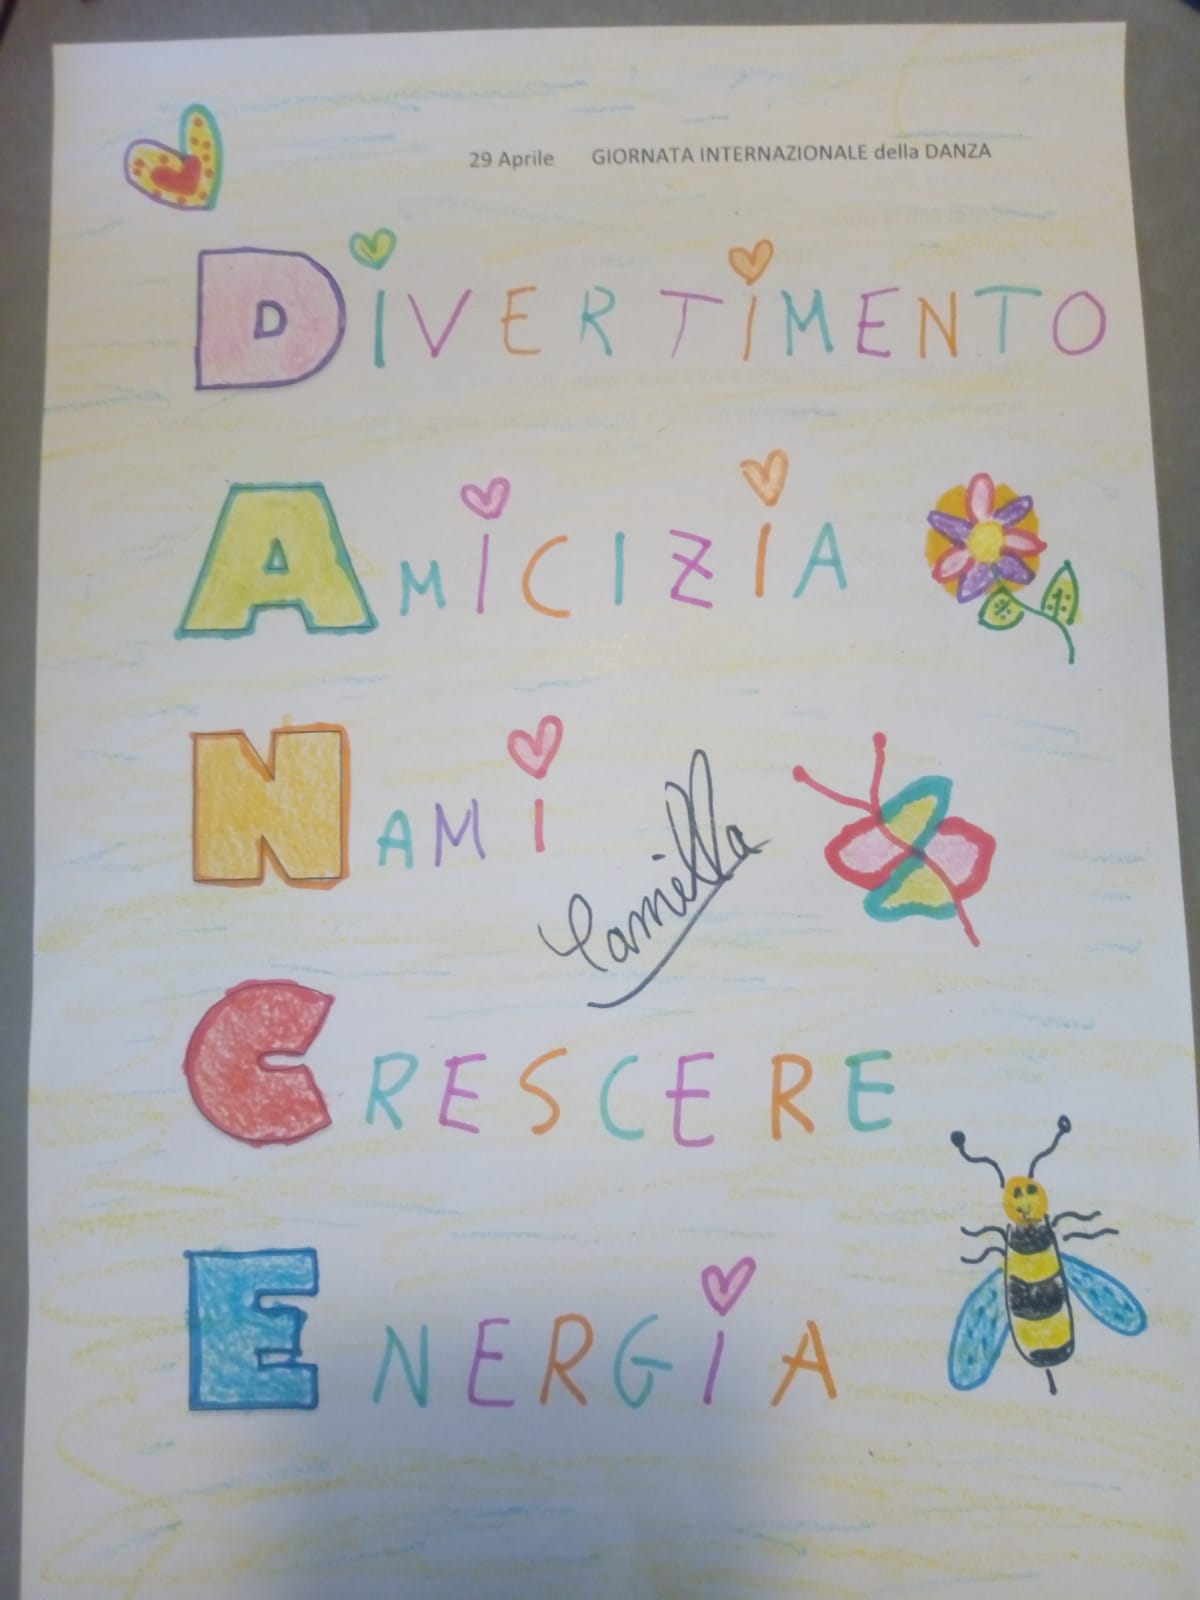 29 Aprile GIORNATA INTERNAZIONALE della DANZA
DIVERTIMENTO
AMICIZIA
NAMI
Camilla
CRESCERE
ENERGIA